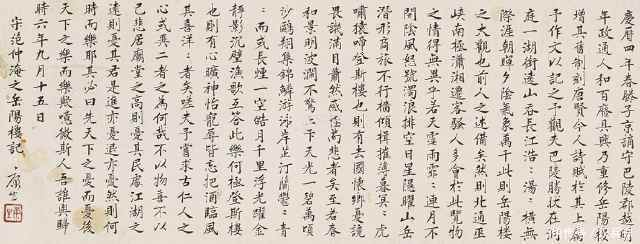 慶曆四年春滕子京謫守巴陵郡越明
年政通人和百廢具興乃重修岳陽樓
增其舊制刻唐賢今人詩賦於其上屬
予作文以記之予觀夫巴陵勝狀在洞
庭一湖銜遠山吞長江浩:湯:橫無
際涯朝暉夕陰氣象萬千此則岳陽樓
之大觀也前人之述備矣然則北通巫
峽南極瀟湘遷客騷人多會於此覽物
之情得無異乎若夫霪雨霏:連月不
開陰風怒號濁浪排空日星隱曜山岳
潛形商旅不行檣傾楫摧薄暮冥:虎
嘯猿啼登斯樓也則有去國懷鄉憂讒
畏譏滿目蕭然感極而悲者矣至若春
和景明波瀾不驚上下天光一碧萬頃
沙鷗翔集錦鱗游泳岸芷汀蘭鬱:青
:而或長煙一空皓月千里浮光耀金
靜影沉璧漁歌互答此樂何極登斯樓
也則有心曠神怡寵辱皆忘把酒臨風
其喜洋:者矣嗟夫予嘗求古仁人之
心或異二者之為何哉不以物喜不以
己悲居廟堂之高則憂其民處江湖之
遠則憂其君是進亦憂退亦憂然則何
時而樂耶其必曰先天下之憂而憂後
天下之樂而樂歟噫微斯人吾誰與歸
時六年九月十五日
宋范仲淹之岳陽樓記